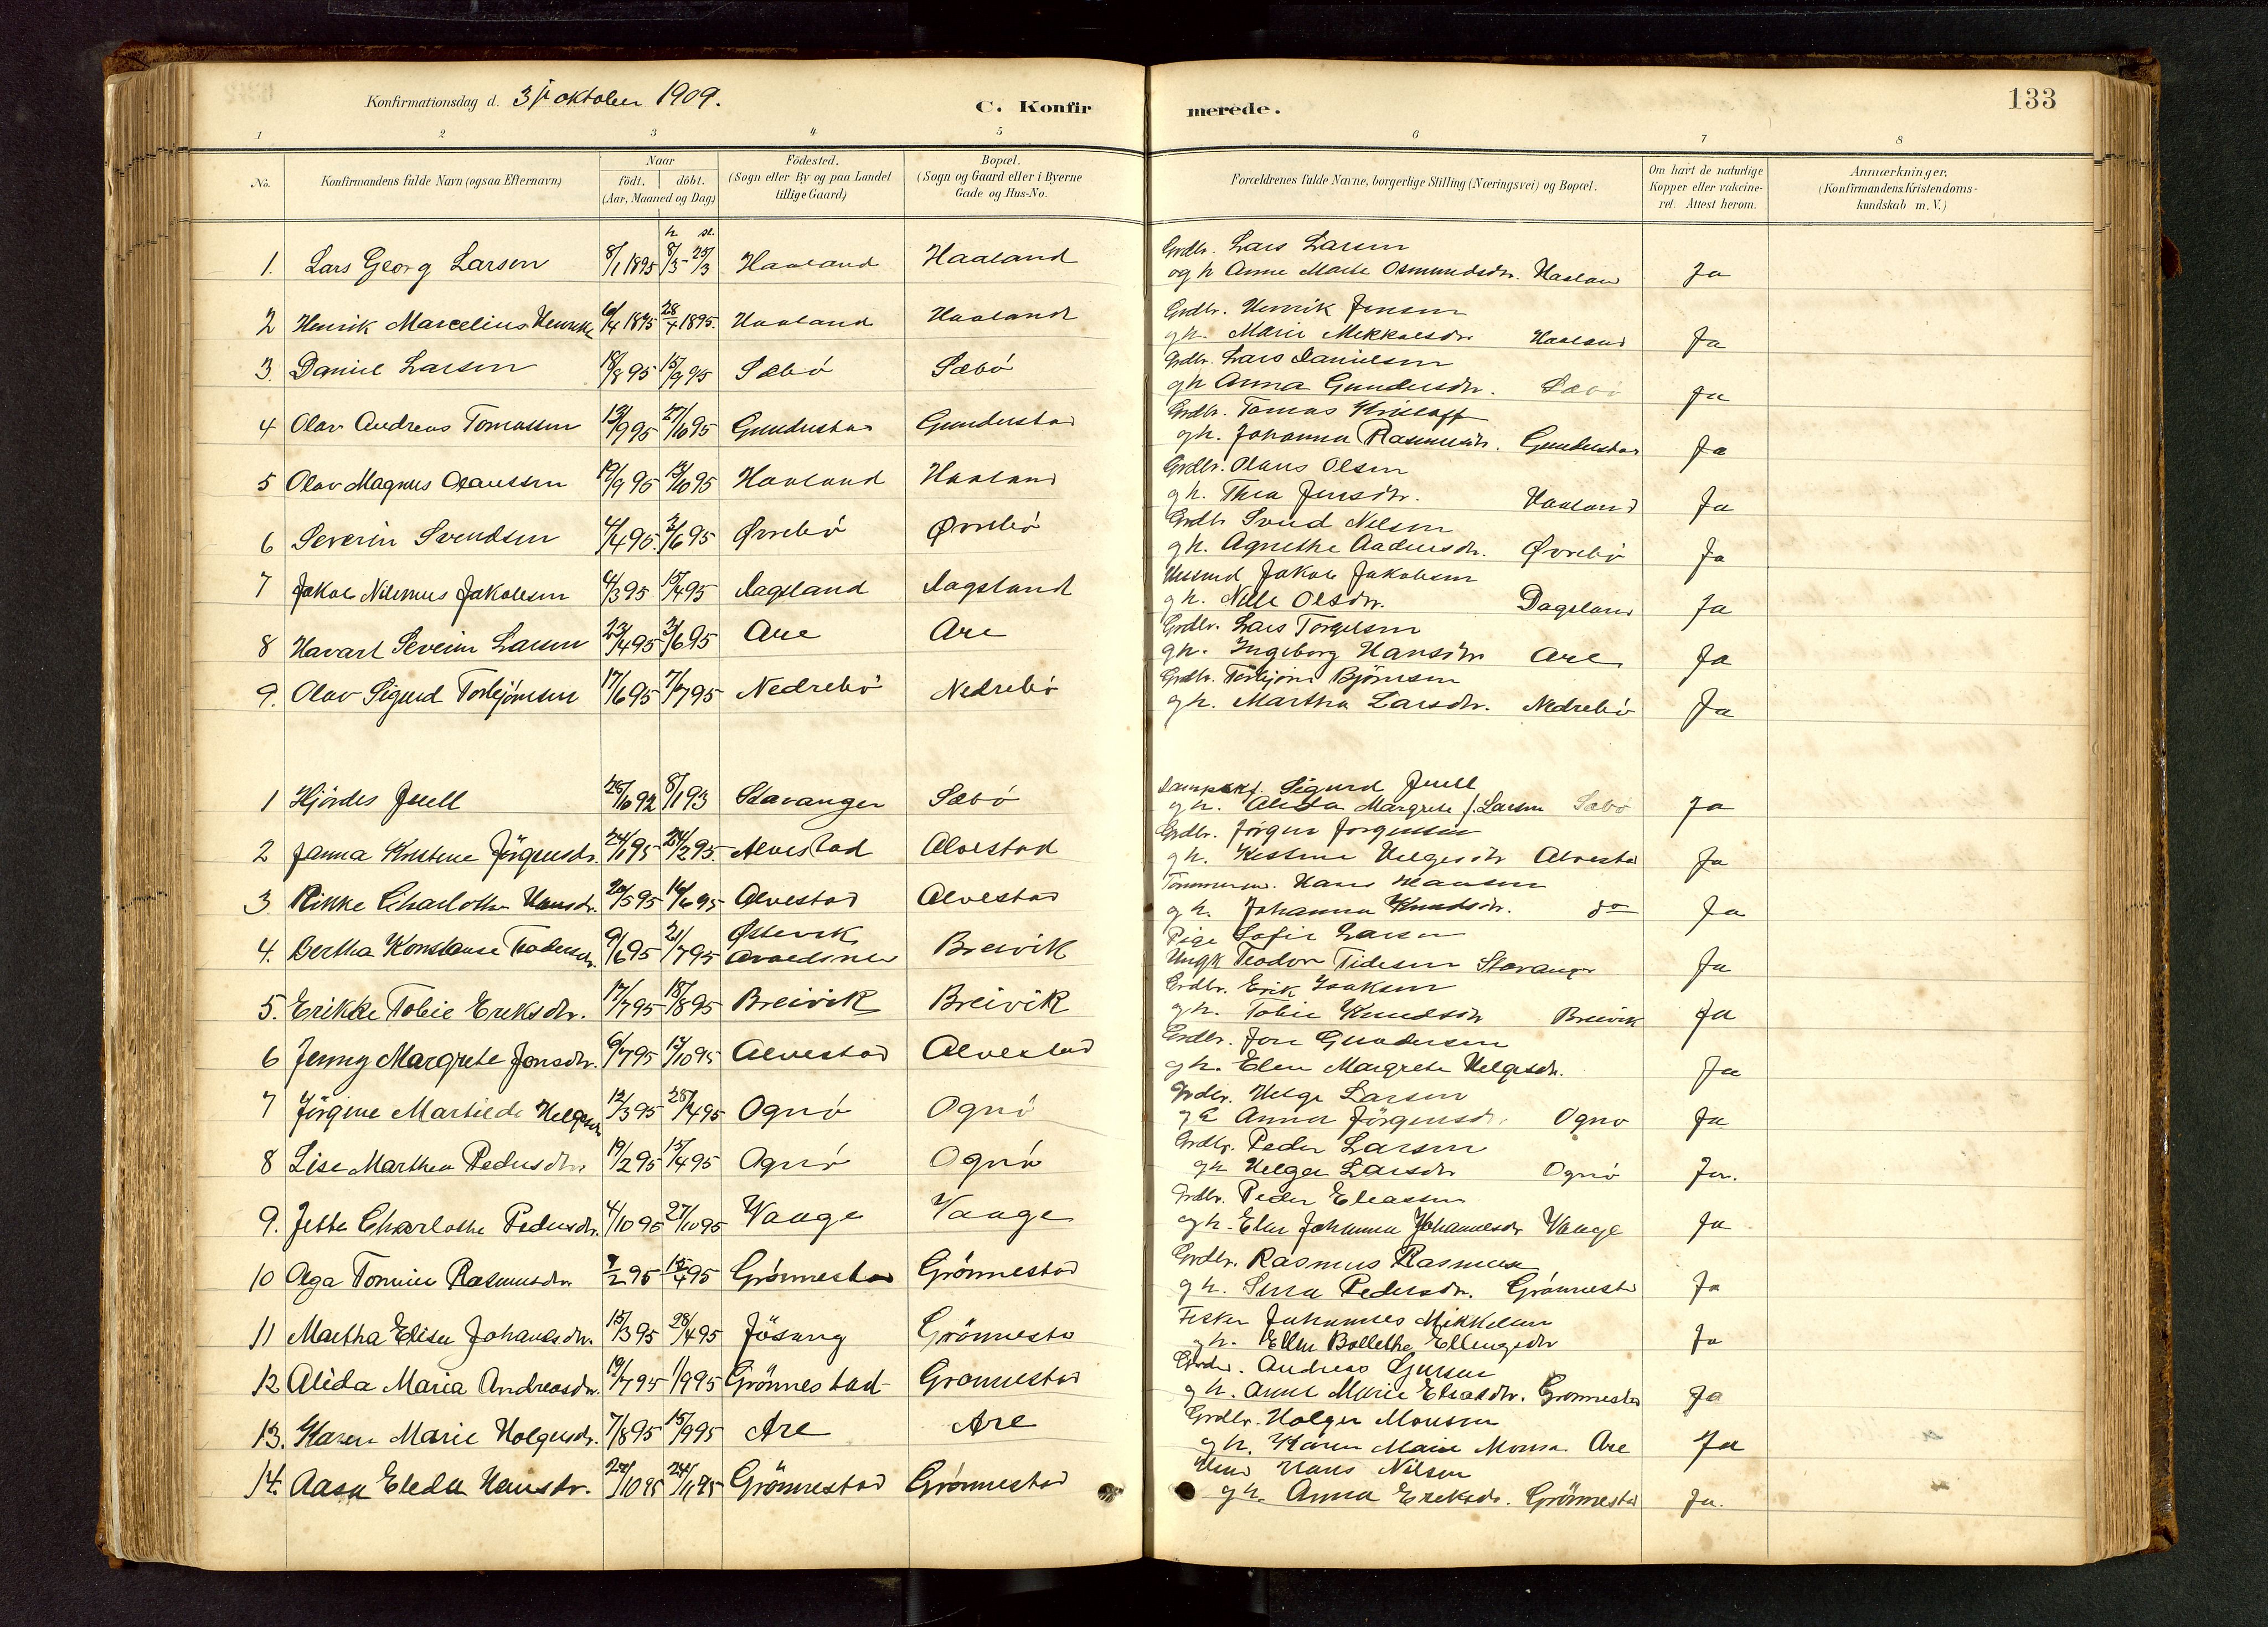 Konfirmationsdag d. 3/ oktober 1909.
C. Konfirmerede.
133
1 2 3 4 5 6 7 8
No.
Konfirmandens fulde Navn (ogsaa Efternavn)
Naar
födt. döbt.
(Aar, Maaned og Dag)
Födested.
(Sogn eller By og paa Landet
tillige Gaard)
Bopæl.
(Sogn og Gaard eller i Byerne
Gade og Hus-No.
Forældrenes fulde Navne, borgerlige Stilling (Næringsvei) og Bopæl.
Om havt de naturlige
Kopper eller vakcine-
ret. Attest herom.
Anmærkninger.
(Konfirmandens Kristendoms-
kundskab m. V.)
1. Lars Georg Larsen 8/1 1895 8/3 - 25/3 Haaland Haaland Grdbr. Lars Larsen
og h Anne Marte Osmundsdtr. Haaland Ja
2 Henrik Marcelius Henriks 6/4 1895 28/4 1895. Haaland Haaland Grdbr. Henrik Jensen
gh. Marie Mikkalsdtr Haaland Ja
3. Daniel Larsen 18/8 95 15/9 95 Sæbö Sæbö Grdbr. Lars Danielsen
gh Anna Gundersdtr. Sæbö Ja
4 Olav Andreas Tomassen 13/9 95 27/10 95 Gunderstad Gunderstad Grdbr. Tomas
gh. Johanna Rasmusdtr. Gunderstad Ja
5 Olav Magnus Olaussen 19/9 95 13/10 95 Haaland Haaland Grdbr. Olaus Olsen
gh. Thea Jensdtr. Haaland Ja
6 Severin Svendsen 4/4 95. 3/6 95 Øvrebö Øvrebö Grdbr Svend Nelsen
gh. Agnethe Aadnesdtr. Øvrebö Ja
7 Jakob Nilemus Jakobsen 4/3 95 15/4 95 Dagsland Dagsland Husmd Jakob Jakobsen
gh. Nille Olsdtr. Dagsland Ja
8 Havart Severin Larsen 23/4 95 3/6 95 Are Are Grdbr. Lars Torgelsen
gh. Ingeborg Hansdtr Are Ja
9. Olav Sigurd Torbjörnsen 17/6 95 7/7 95 Nedrebö Nedrebö Grdbr. Torbjörn Björnsen
gh. Martha Larsdtr. Nedrebö Ja
1 Hjördis Juell 26/10 92 8/1 93 Stavanger Sæbö Sigurd Juell
gh. Alida Margrete f. Larsen Sæbö Ja
2 Janna Kristine Jörgensdtr. 24/1 95 24/2 95. Alvestad Alvestad Grdbr. Jörgen Jörgensen
gh. Kistine Helgesdtr Alvestad Ja
3 Rikke Charlotte Hansdtr. 20/5 95 16/6 95 Alvestad Alvestad Tömmerm. Hans Hansen
gh. Johanna Knudsdtr. do Ja
4. Bertha Konstanse Teodorsdtr. 9/6 95 21/7 95 Østevik Breivik Pige Sofie Larsen
Ungk Teodor Tidesen Stavanger Ja
5. Erikke Tobie Eriksdtr. 17/7 95 18/8 95 Breivik Breivik Grdbr. Erik Isaksen
gh. Tobie Knudsdtr Breivik Ja
6 Jenny Margrete Jonsdtr. 6/7 95 13/10 95 Alvestad Alvestad Grdbr. Jon Gundersen
gh. Elen Margrete Helgesdtr. Ja
7 Jörgine Martilde Helgesdtr 12/3 95 28/4 95 Ognö Ognö Grdbr. Helge Larsen
gh Anna Jörgensdtr. Ognö Ja
8 Lise Marthea Pedersdtr. 19/2 95 15/4 95 Ognö Ognö Grdbr. Peder Larsen
gh Helga Larsdtr Ognö Ja.
9. Jette Charlotte Pedersdtr. 4/10 95 27/10 95 Vaage Vaage Grdbr. Peder Eleassen
gh. Elen Johanna Johannesdtr Vaage Ja
10 Olga Tomine Rasmusdtr. 7/2 95 15/4 95 Grönnestad Grönnestad Grdbr. Rasmus Rasmussen
gh. Sina Pedersdtr. Grönnestad Ja
11 Martha Elise Johansdtr. 15/3 95 28/4 95 Jösang Grönnestad Fisker Johannes Mikkelsen
gh. Ellen Bollethe Ellingsdtr Ja
12 Alida Maria Andreasdtr. 19/7 95 1/9 95 Grönnestad Grönnestad Grdbr. Andreas
gh. Anne Marie Eliasdtr. Grönnestad Ja
13. Karen Marie Holgersdtr. 7/8 95 15/9 95 Are Are Grdbr. Holger Monsen
gh. Karen Marie Monsen Are Ja
14. Aasa Eleda Hansdtr. 24/10 95 24/11 95 Grönnestad Grönnestad Hans Nilsen
gh. Anna Eriksdtr. Grönnestad Ja.